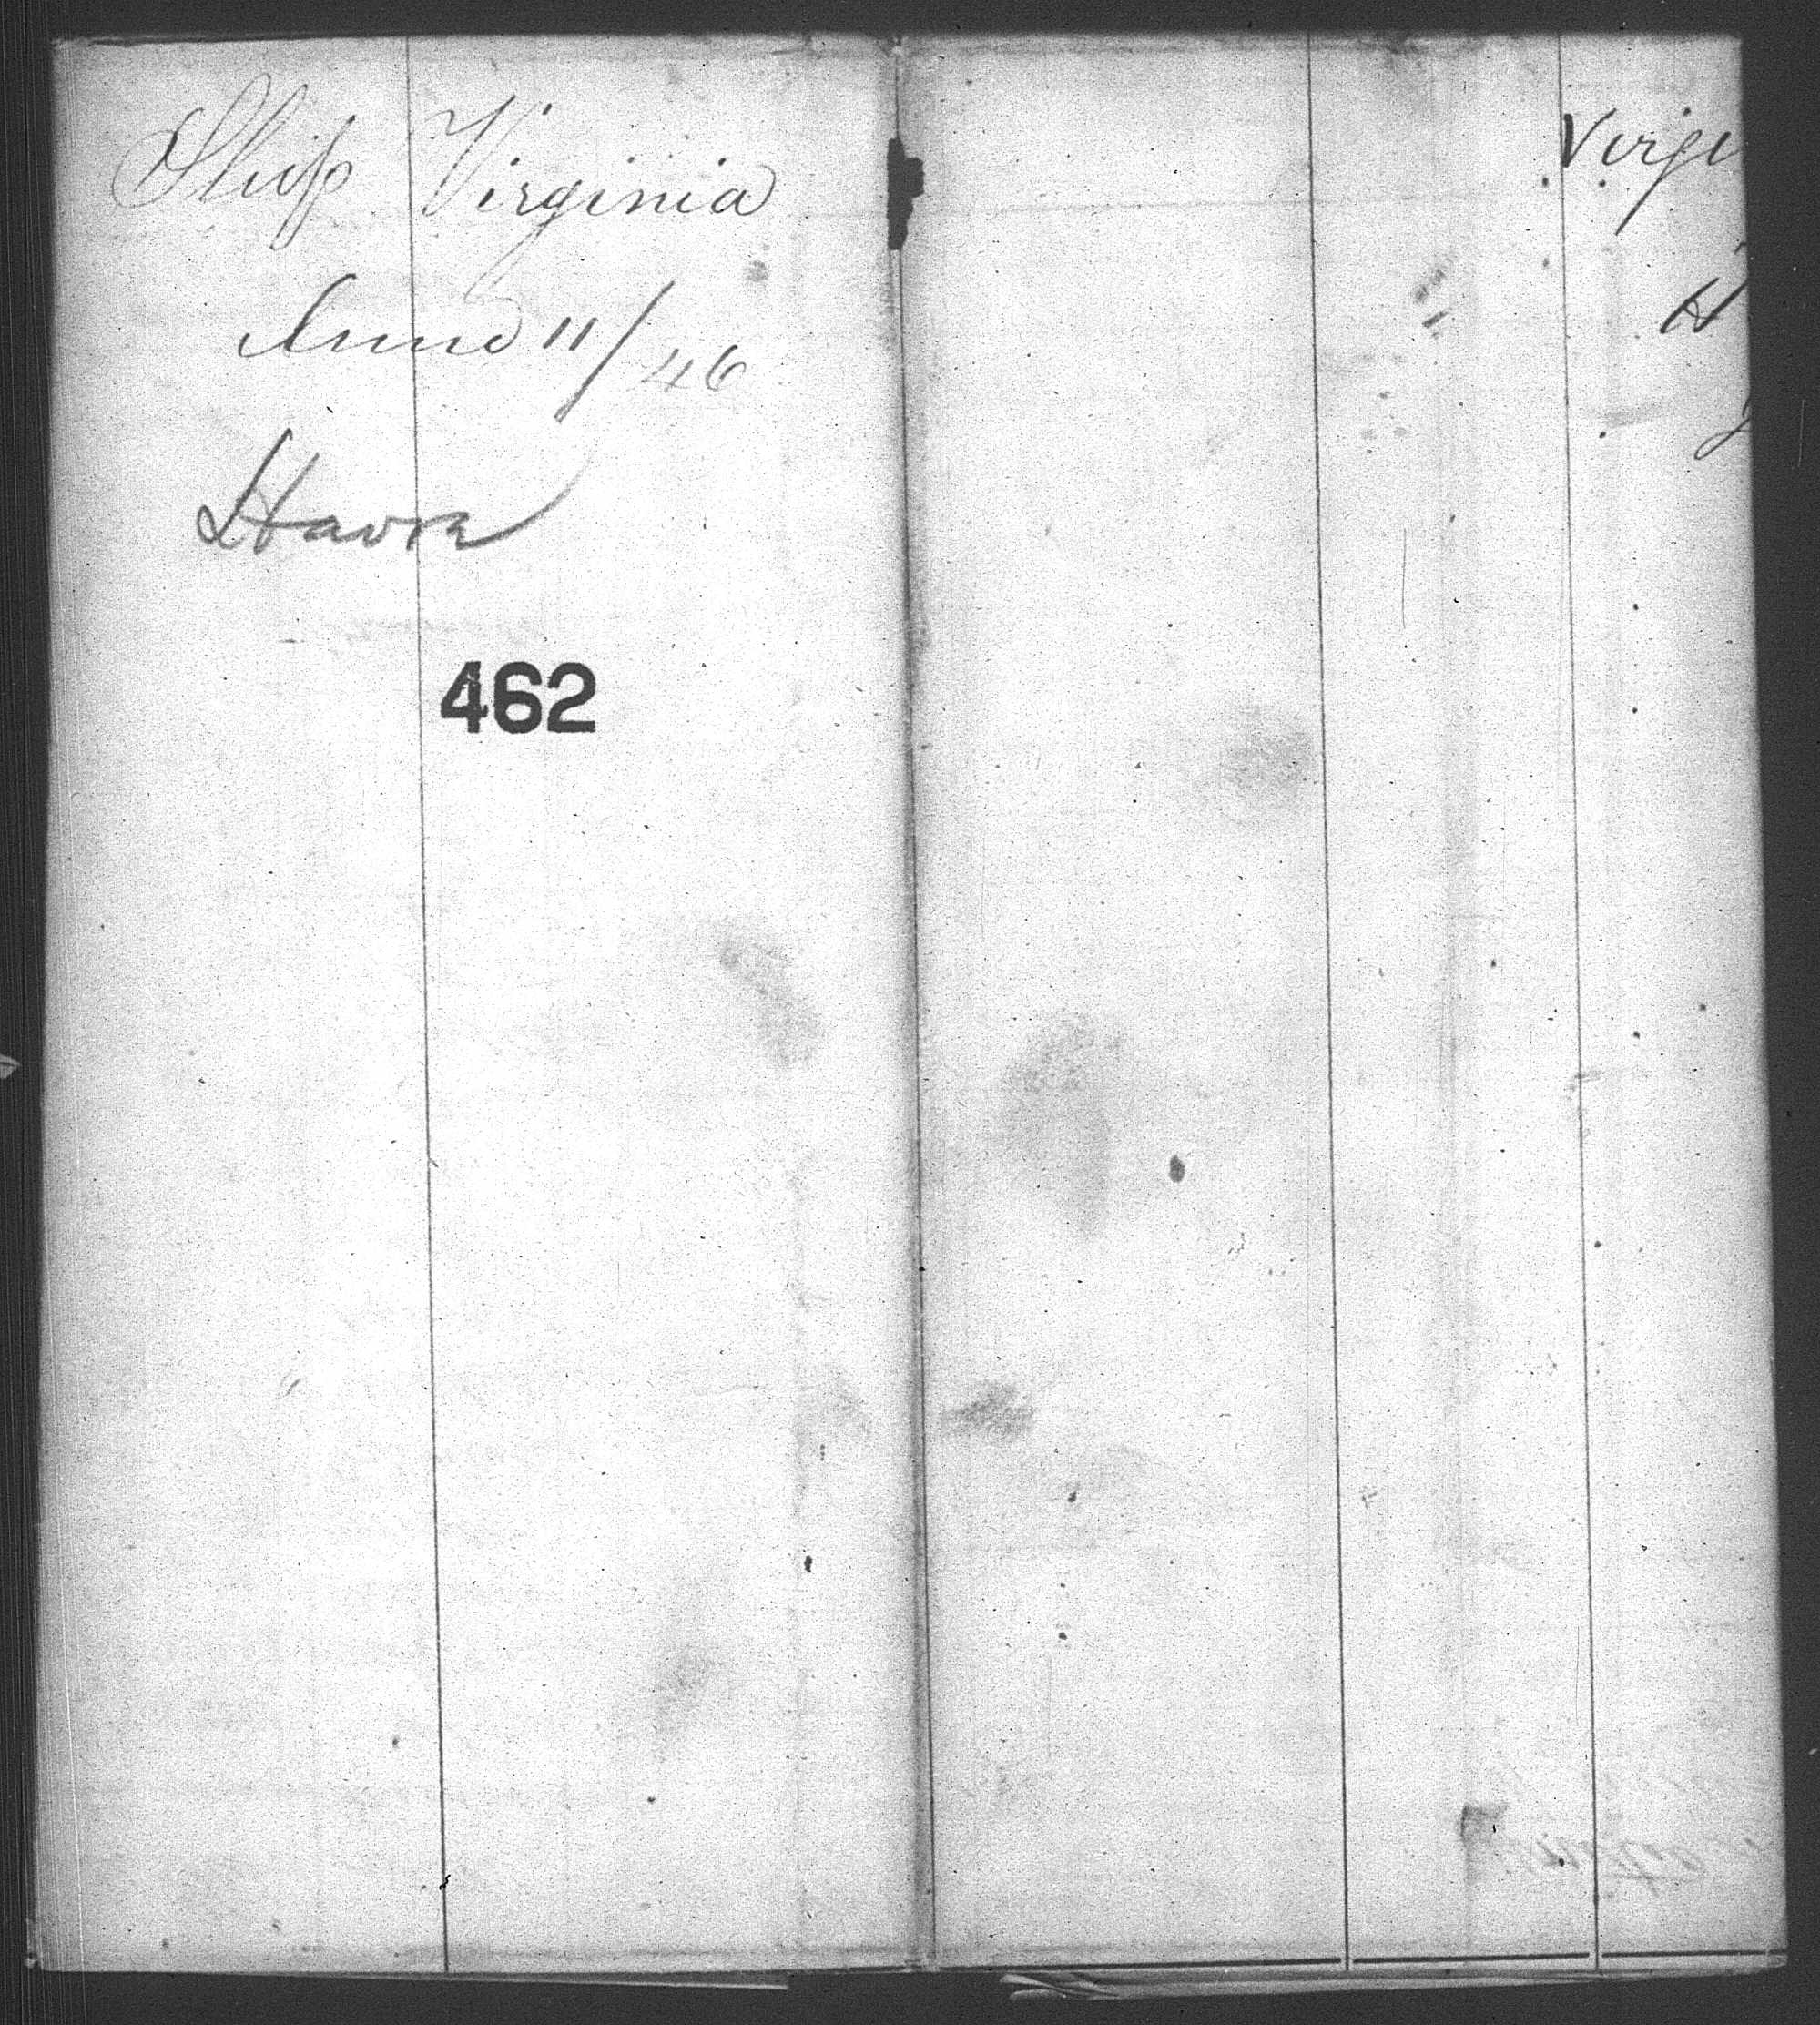 Ship Virginia
June 11/46
Havre
462
Virgi
H